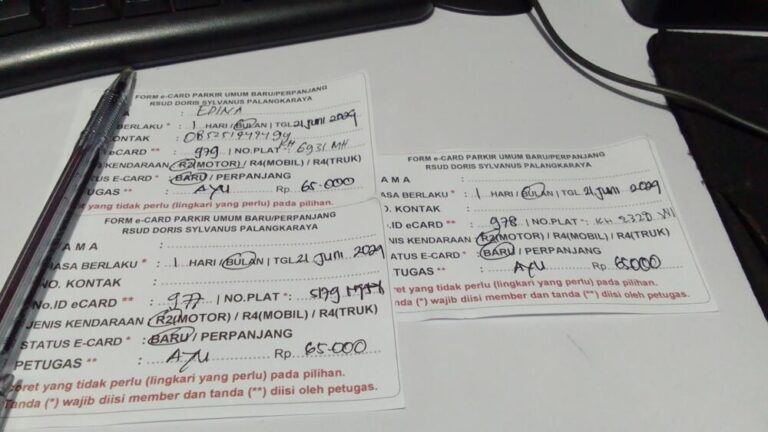 FORM e-CARD PARKIR UMUM BARU/PERPANJANG
RSUD DORIS SYLVANUS PALANGKARAYA
A : EDINA
BERLAKU * : 1 HARI / BULAN | TGL 21 Juni 2024
KONTAK : 085251949494
eCARD ** : 979 | NO.PLAT * : KH 6931 MH
KENDARAAN : R2(MOTOR) / R4(MOBIL) / R4(TRUK)
STATUS E-CARD * : BARU / PERPANJANG
PETUGAS ** : AYU Rp 65.000
ret yang tidak perlu (lingkari yang perlu) pada pilihan.
FORM e-CARD PARKIR UMUM BARU/PERPANJANG
RSUD DORIS SYLVANUS PALANGKARAYA
A M A :
MASA BERLAKU * : 1 HARI / BULAN | TGL 21 Juni 2024
NO. KONTAK :
No.ID eCARD ** : 977 | NO.PLAT * : 5179
JENIS KENDARAAN : R2(MOTOR) / R4(MOBIL) / R4(TRUK)
STATUS E-CARD * : BARU / PERPANJANG
PETUGAS ** : AYU Rp 65.000
oret yang tidak perlu (lingkari yang perlu) pada pilihan.
Tanda (*) wajib diisi member dan tanda (**) diisi oleh petugas.
FORM e-CARD PARKIR UMUM BARU/PERPANJANG
RSUD DORIS SYLVANUS PALANGKARAYA
A M A :
ASA BERLAKU * : 1 HARI / BULAN | TGL 21 Juni 2024
O. KONTAK :
o.ID eCARD ** : 978 | NO.PLAT * : KH 2320
ENIS KENDARAAN : R2(MOTOR) / R4(MOBIL) / R4(TRUK)
STATUS E-CARD * : BARU / PERPANJANG
PETUGAS ** : AYU Rp 65000
oret yang tidak perlu (lingkari yang perlu) pada pilihan.
nda (*) wajib diisi member dan tanda (**) diisi oleh petugas.